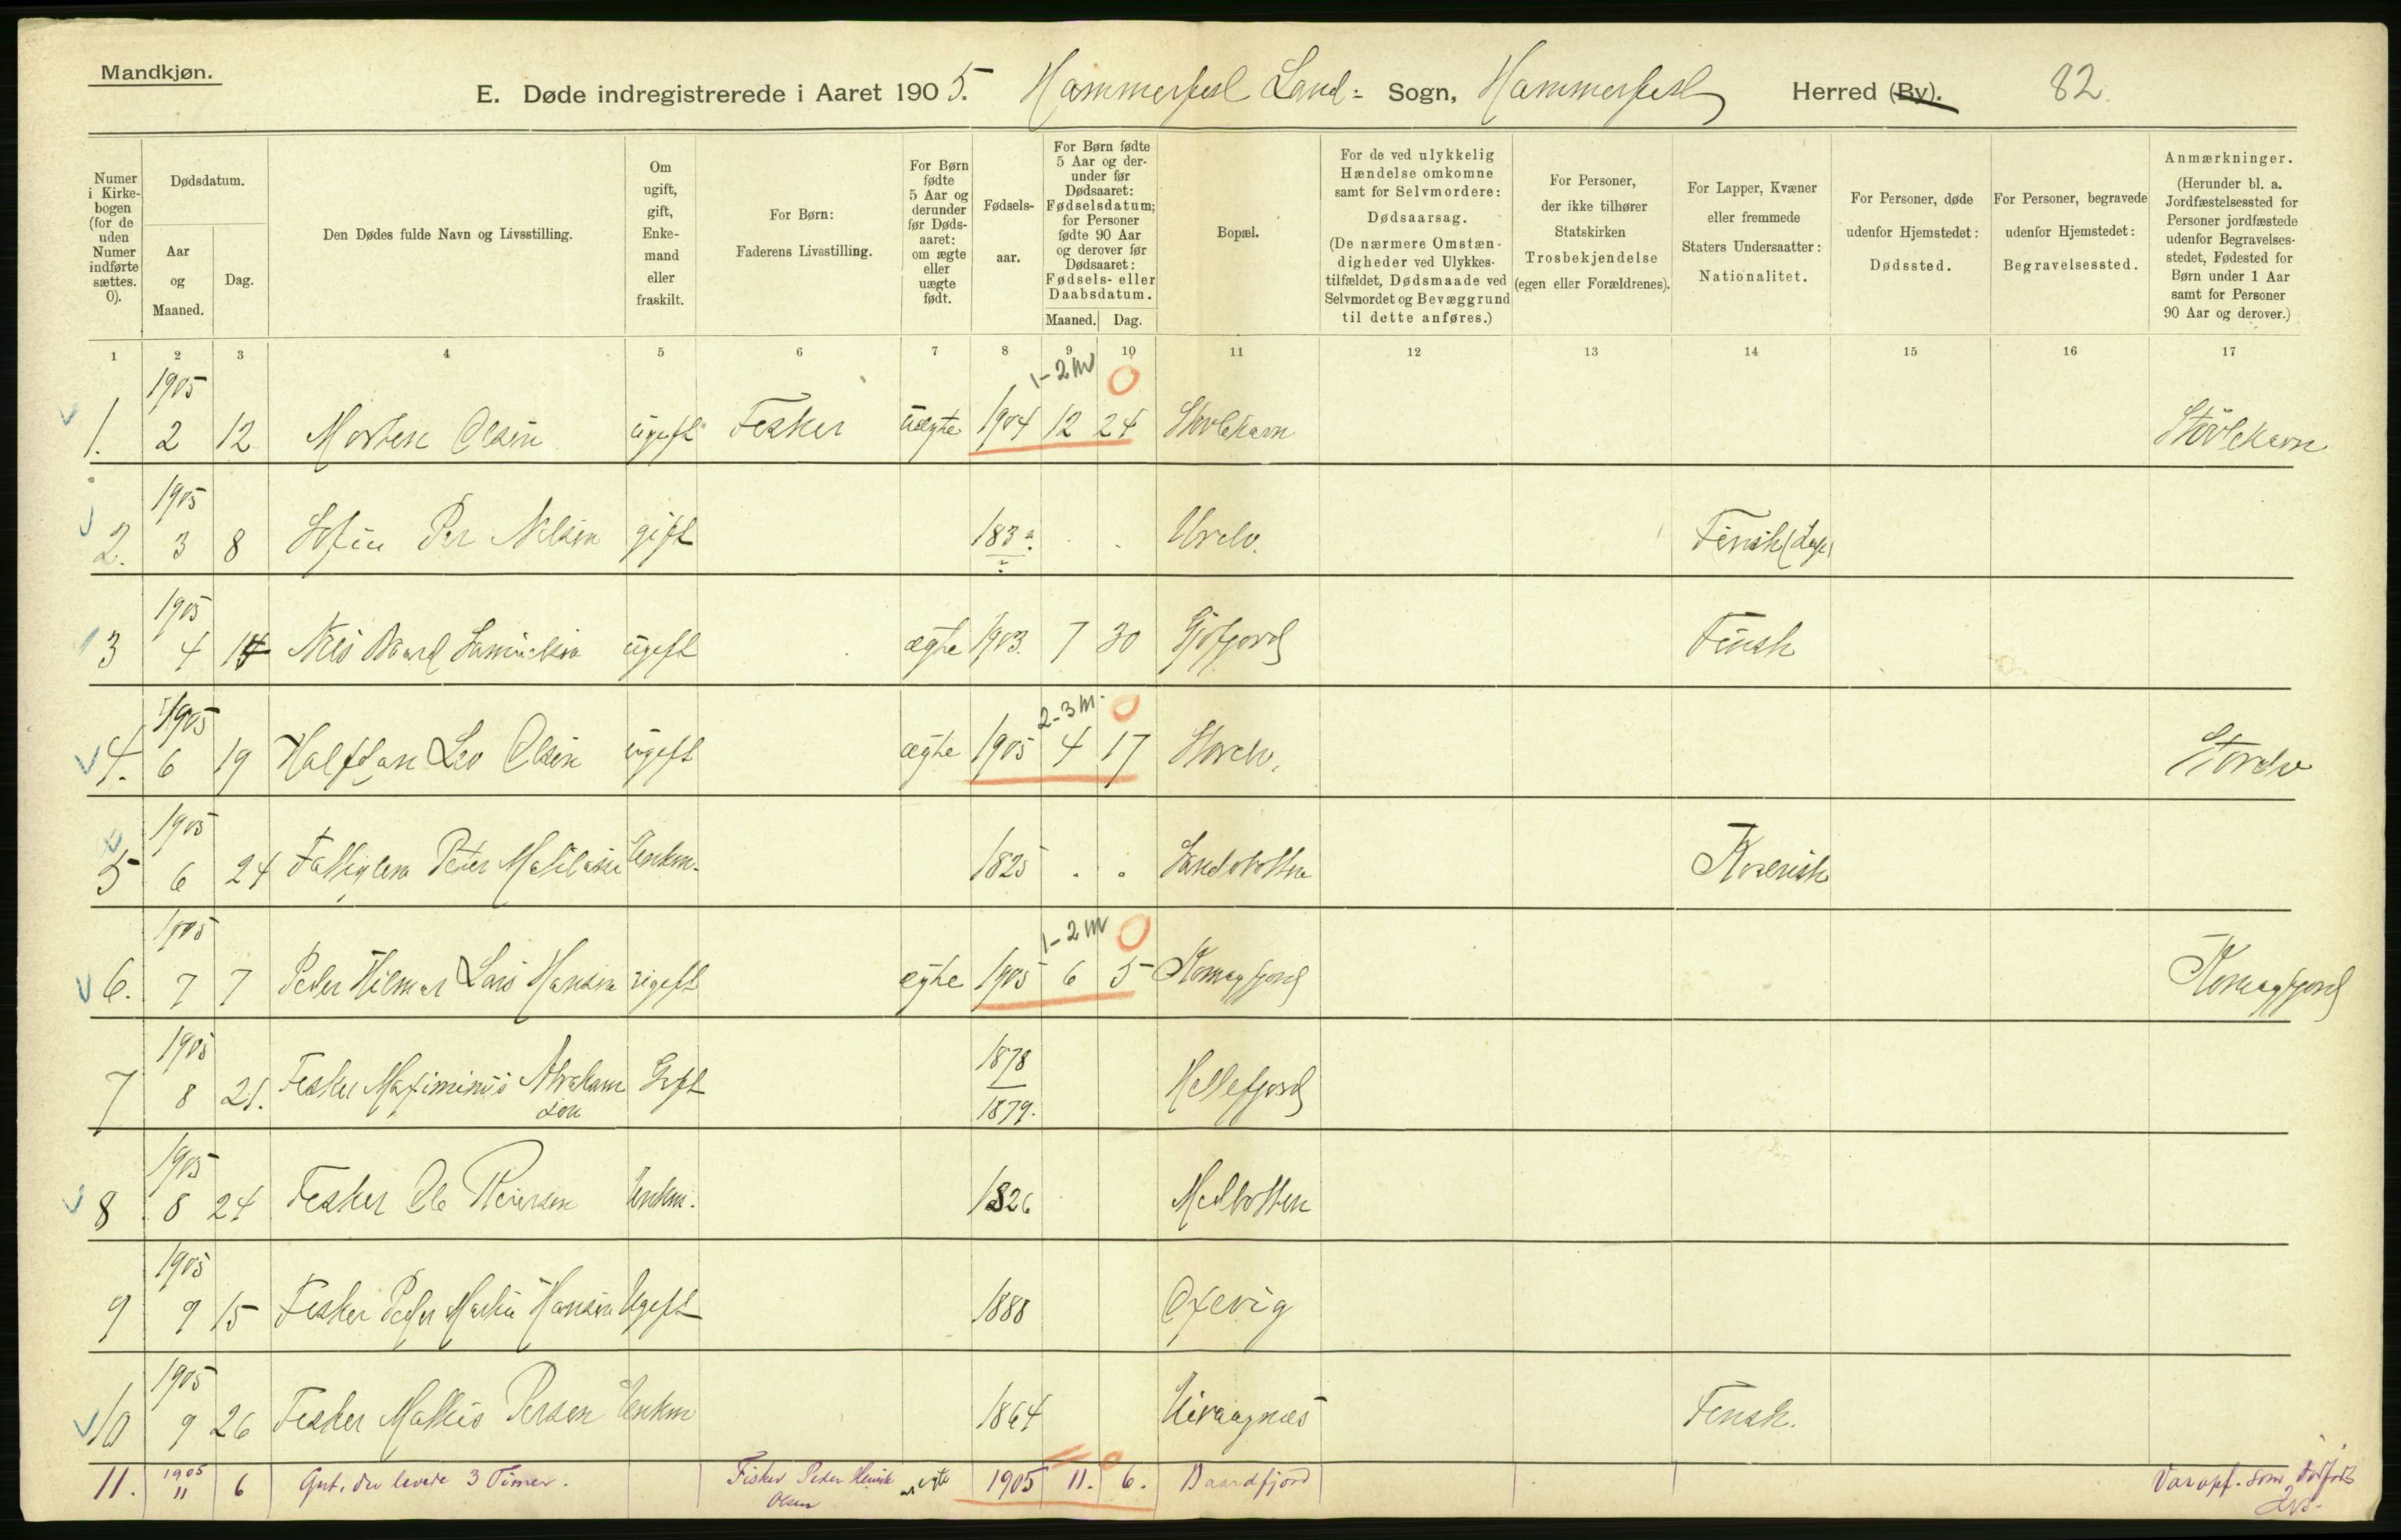 Mandkjøn.
E. Døde indregistrerede i Aaret 1905. Hammerfest Land- Sogn, Hammerfest Herred (By). 82.
Numer i Kirkebogen (for de uden Numer indførte sættes. 0).
Dødsdatum.
Aar og Maaned.
Dag.
Den Dødes fulde Navn og Livsstilling.
Om ugift, gift, Enkemand eller fraskilt.
For Børn: Faderens Livsstilling.
For Børn fødte 5 Aar og derunder før Dødsaaret: om ægte eller uægte født.
Fødselsaar.
For Børn fødte 5 Aar og derunder før Dødsaaret: Fødselsdatum; for Personer fødte 90 Aar og derover før Dødsaaret: Fødsels- eller Daabsdatum.
Maaned. Dag.
Bopæl.
For de ved ulykkelig Hændelse omkomne samt for Selvmordere: Dødsaarsag. (De nærmere Omstændigheder ved Ulykkestilfældet, Dødsmaade ved Selvmordet og Bevæggrund til dette anføres.)
For Personer, der ikke tilhører Statskirken Trosbekjendelse (egen eller Forældrenes).
For Lapper, Kvæner eller fremmede Staters Undersaatter: Nationalitet.
For Personer, døde udenfor Hjemstedet: Dødssted.
For Personer, begravede udenfor Hjemstedet: Begravelsessted.
Anmærkninger. (Herunder bl. a. Jordfæstelsessted for Personer jordfæstede udenfor Begravelsesstedet, Fødested for Børn under 1 Aar samt for Personer 90 Aar og derover.)
1 2 3 4 5 6 7 8 9 10 11 12 13 14 15 16 17
1905 1-2 M 0
1. 2 12 Morten Olsen ugift Fisker uægte 1904 12 24
1905
2. 3 8 Per Nilsen gift 183 Finsk (Lap)
1905
3 4 14 Nils Baard Samuelsen ugift ægte 1903. 7 30 Finsk
1905 2-3 M. 0
4. 6 19 Halfdan Leo Olsen ugift ægte 1905 4 17 Storelv, Storelv
1905
5 6 24 Peder Enkm. 1825 Kvensk
1905 1-2 M 0
6. 7 7 Peder Hilmar Lars Hansen ugift ægte 1905 6 5 Komagfjord Komagfjord
1905
7 8 21. Fisker Maximinus Abraham sen Gift 1878 1879. Hellefjord
1905
8 8 24 Fisker Ole Enkm. 1826
1905
9 9 15 Fisker Peder Martin Hansen Ugift 1888 Oxevig
1905
10 9 26 Fisker Mathis Persen Enkm 1864 Finsk.
11. 1905 11 6 Gut, der levede 3 Timer. Fisker Peder Henrik Olsen ægte 1905 11. 6. Baardfjord Var opf. som